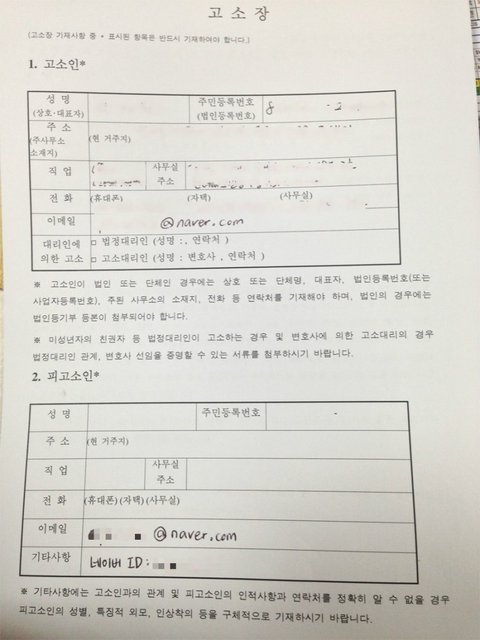 고 소 장
(고소장 기재사항 중 * 표시된 항목은 반드시 기재하여야 합니다.)
1. 고소인*
성 명
(상호·대표자)
주민등록번호
(법인등록번호)
8 - 2
주 소
(주사무소
소재지)
(현 거주지)
직 업
사무실
주소
전 화
(휴대폰) (자택) (사무실)
이메일
@naver.com
대리인에
의한 고소
□ 법정대리인 (성명 : , 연락처 )
□ 고소대리인 (성명 : 변호사 , 연락처 )
※ 고소인이 법인 또는 단체인 경우에는 상호 또는 단체명, 대표자, 법인등록번호(또는
사업자등록번호), 주된 사무소의 소재지, 전화 등 연락처를 기재해야 하며, 법인의 경우에는
법인등기부 등본이 첨부되어야 합니다.
※ 미성년자의 친권자 등 법정대리인이 고소하는 경우 및 변호사에 의한 고소대리의 경우
법정대리인 관계, 변호사 선임을 증명할 수 있는 서류를 첨부하시기 바랍니다.
2. 피고소인*
성 명
주민등록번호
-
주 소
(현 거주지)
직 업
사무실
주소
전 화
(휴대폰) (자택) (사무실)
이메일
@naver.com
기타사항
네이버 ID :
※ 기타사항에는 고소인과의 관계 및 피고소인의 인적사항과 연락처를 정확히 알 수 없을 경우
피고소인의 성별, 특징적 외모, 인상착의 등을 구체적으로 기재하시기 바랍니다.